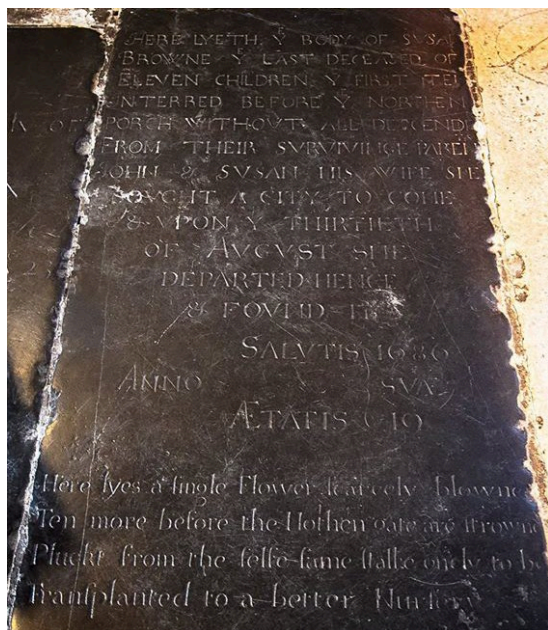 HERE LYETH Yᴱ BODY OF SUSA
BROWNE Yᴱ LAST DECEASED OF
ELEVEN CHILDREN Yᴱ FIRST TEN
INTERRED BEFORE Yᴱ NORTHEN
PORCH WITHOVT: ALL DESCENDE
FROM THEIR SURVIVINGE PAREN
JOHN & SUSAN HIS WIFE SHE
SOUGHT A CITY TO COME
& UPON Yᴱ THIRTIETH
OF AUGUST SHE
DEPARTED HENCE
& FOVND IT
SALUTIS 1686
ANNO SUÆ
ÆTATIS 19
Here lyes a single Flower scarcely blowne
Ten more before the Nothen gate are strowne
Pluckt from the selfe-same stalke onely to be
Transplanted to a better Nursery